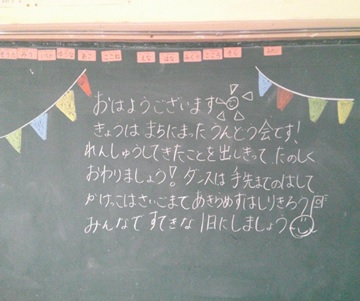 おはようございます
きょうは まちにまった うんどう会です!
れんしゅうしてきたことを出しきって、たのしく
おわりましょう! ダンスは手先までのばして
かけっこはさいごまであきらめずはしりきろう!
みんなですてきな1日にしましょう